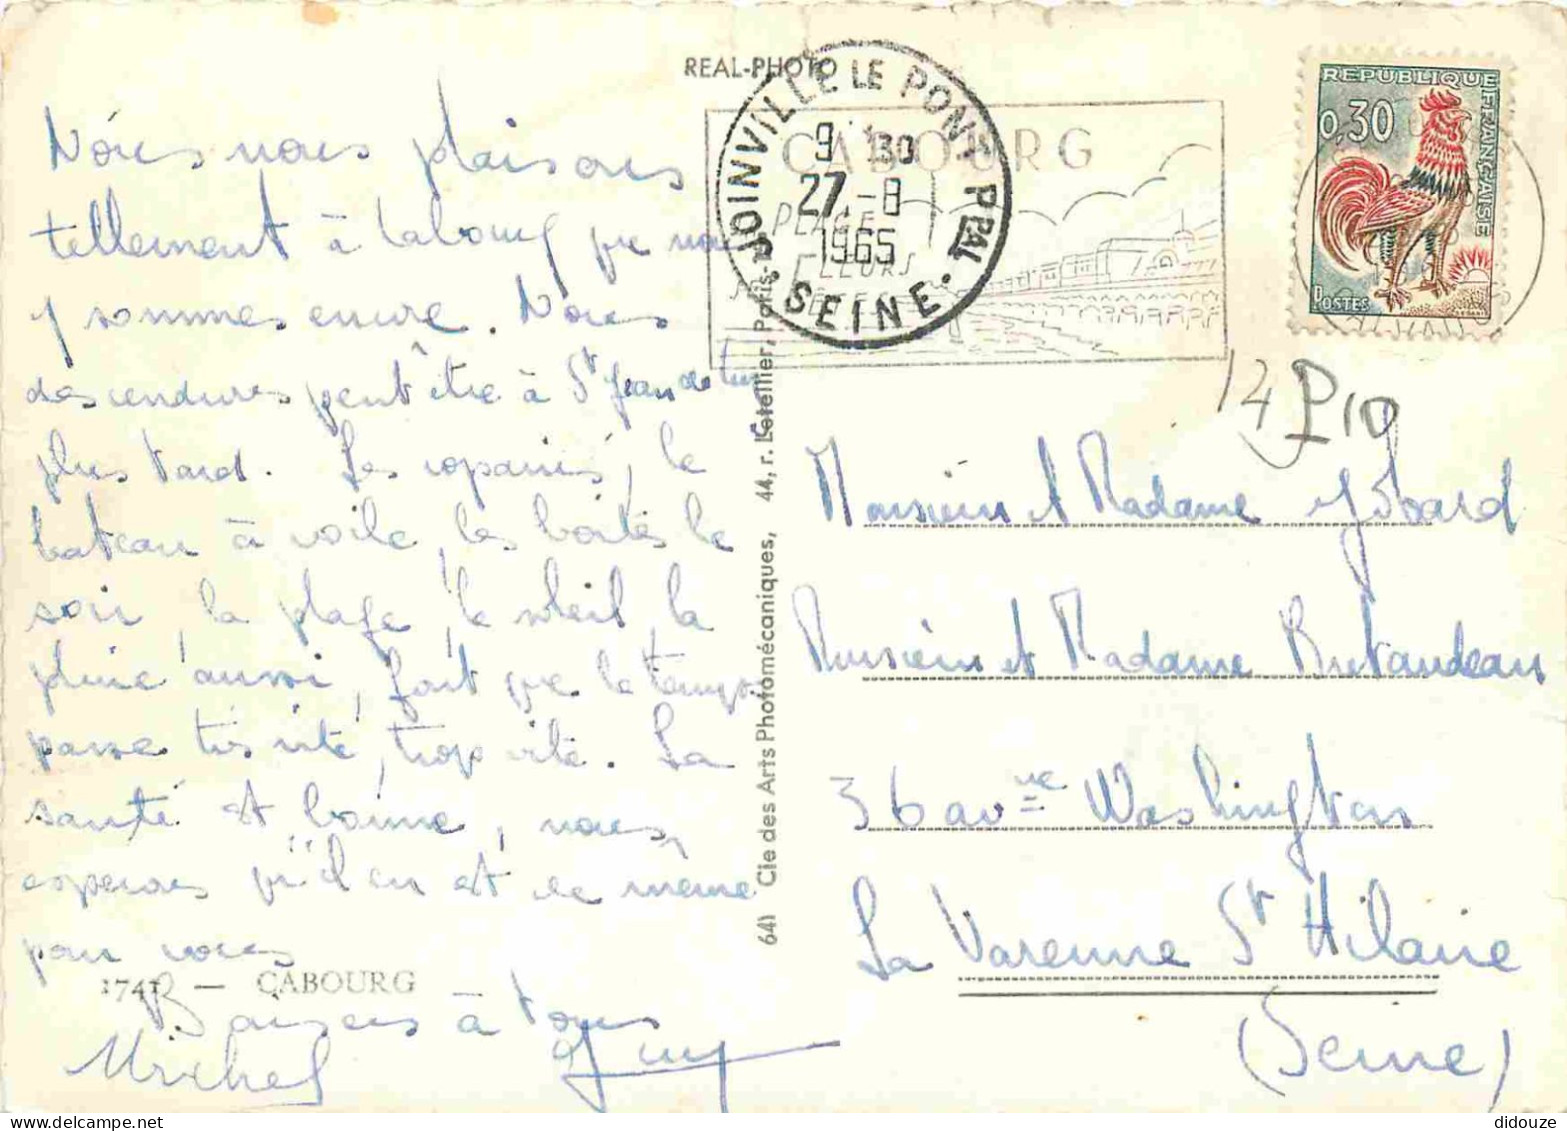 Nous nous plaisons
tellement à Cabourg que nous
y sommes encore. Nous
descendrons peut être à St Jean de Luz
plus tard. Les copains, le
bateau à voile, les boîtes le
soir, la plage, le soleil, la
pluie aussi, font que le temps
passe très vite, trop vite. La
santé est bonne, nous
esperons qu'il en est de même
pour vous
1741 — CABOURG
Baisers à tous
Michel
REAL-PHOTO
641 Cie des Arts Photomécaniques, 44, r. Letellier, Paris-15
JOINVILLE LE PONT PPAL
9 30
27 -8
1965
SEINE
CABOURG
PLAGE
FLEURS
REPUBLIQUE FRANÇAISE
0,30
POSTES
P10
Monsieur et Madame Jobard
Monsieur et Madame Butaudeau
36 avenue Washington
La Varenne St Hilaire
(Seine)
didouze
delcampe.net